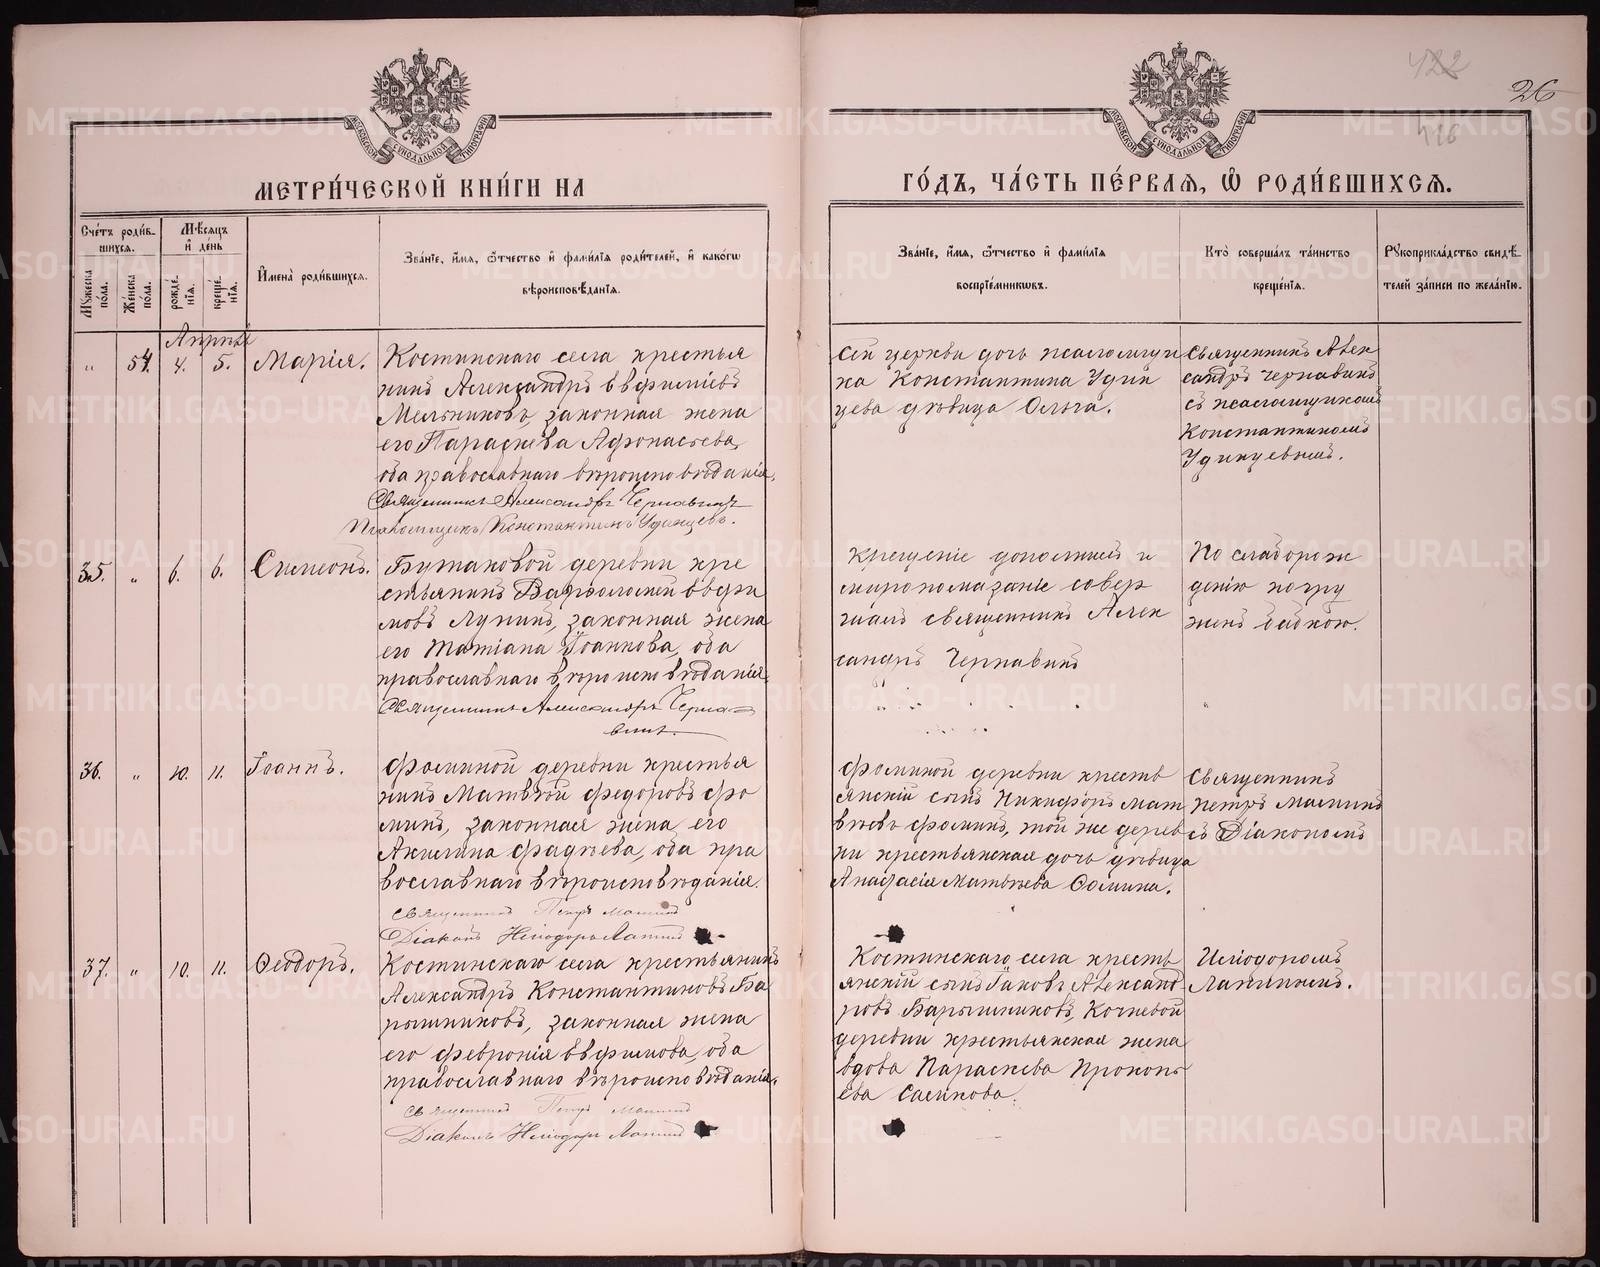 422
26
416
МОСКОВСКОЙ СУНОДАЛЬНОЙ ТИПОГРАФІИ
МОСКОВСКОЙ СУНОДАЛЬНОЙ ТИПОГРАФІИ
МЕТРИ́ЧЕСКОЙ КНИ́ГИ НА
ГО́ДЪ, ЧА́СТЬ ПЕ́РВАѦ, Ѡ҆ РОДИ́ВШИХСѦ.
Сче́тъ роди́в-
шихся.
Мꙋжеска пола.
Же́нска пола.
Мѣ́сяцъ
и҆ де́нь
рожде́-
нїѧ.
креще́-
нїѧ.
И҆мена̀ роди́вшихсѧ.
Зва́нїе, и҆́мѧ, ѻ҆́тчество и҆ фами́лїѧ роди́телей, и҆ како́гѡ
вѣроисповѣ́данїѧ.
Зва́нїе, и҆́мѧ, ѻ҆́тчество и҆ фами́лїѧ
воспрїе́мникѡвъ.
Кто̀ соверша́лъ та́инство
креще́нїѧ.
Рꙋкоприкла́дство свидѣ́-
телей за́писи по жела́нїю.
Апрѣль
" 54. 4. 5. Марія.
Костинскаго села крестья
нинъ Александръ Евфиміевъ
Мельниковъ, законная жена
его Параскева Афонасьева,
оба православнаго вѣроисповѣданія.
Священникъ Александръ Чернавинъ
Псаломщикъ Константинъ Удинцевъ.
Сей церкви дочь псаломщи
ка Константина Удин
цева дѣвица Ольга.
Священникъ Алек
сандръ Чернавинъ
съ псаломщикомъ
Константиномъ
Удинцевымъ.
35. " 6. 6. Симеонъ.
Бутаковой деревни кре
стьянинъ Варфоломей Евфи
мовъ Лупинъ, законная жена
его Татіана Іоаннова, оба
православнаго вѣроисповѣданія.
Священникъ Александръ Черна-
винъ.
Крещеніе дополнилъ и
миропомазаніе совер
шилъ священникъ Алек
сандръ Чернавинъ
По слаборож
денію погру
женъ бабкою.
36. " 10. 11. Іоаннъ.
Фоминой деревни крестья
нинъ Матвѣй Федоровъ Фо
минъ, законная жена его
Акилина Фадѣева, оба пра
вославнаго вѣроисповѣданія.
Священникъ Петръ
Діаконъ Иліодоръ Лапинъ
Фоминой деревни кресть
янскій сынъ Никифоръ Мат
вѣевъ Фоминъ, той же дерев
ни крестьянская дочь дѣвица
Анастасія Матвѣева Фомина.
Священникъ
Петръ
съ Діакономъ
37. " 10. 11. Ѳеодоръ.
Костинскаго села крестьянинъ
Александръ Константиновъ Ба
рышниковъ, законная жена
его Февронія Евфимова, оба
православнаго вѣроисповѣданія.
Священникъ Петръ
Діаконъ Иліодоръ Лапинъ
Костинскаго села кресть
янскій сынъ Іаковъ Александ
ровъ Барышниковъ, Кочневой
деревни крестьянская жена
вдова Параскева Прокопь
ева
Иліодоромъ
Лапинымъ.
METRIKI.GASO-URAL.RU